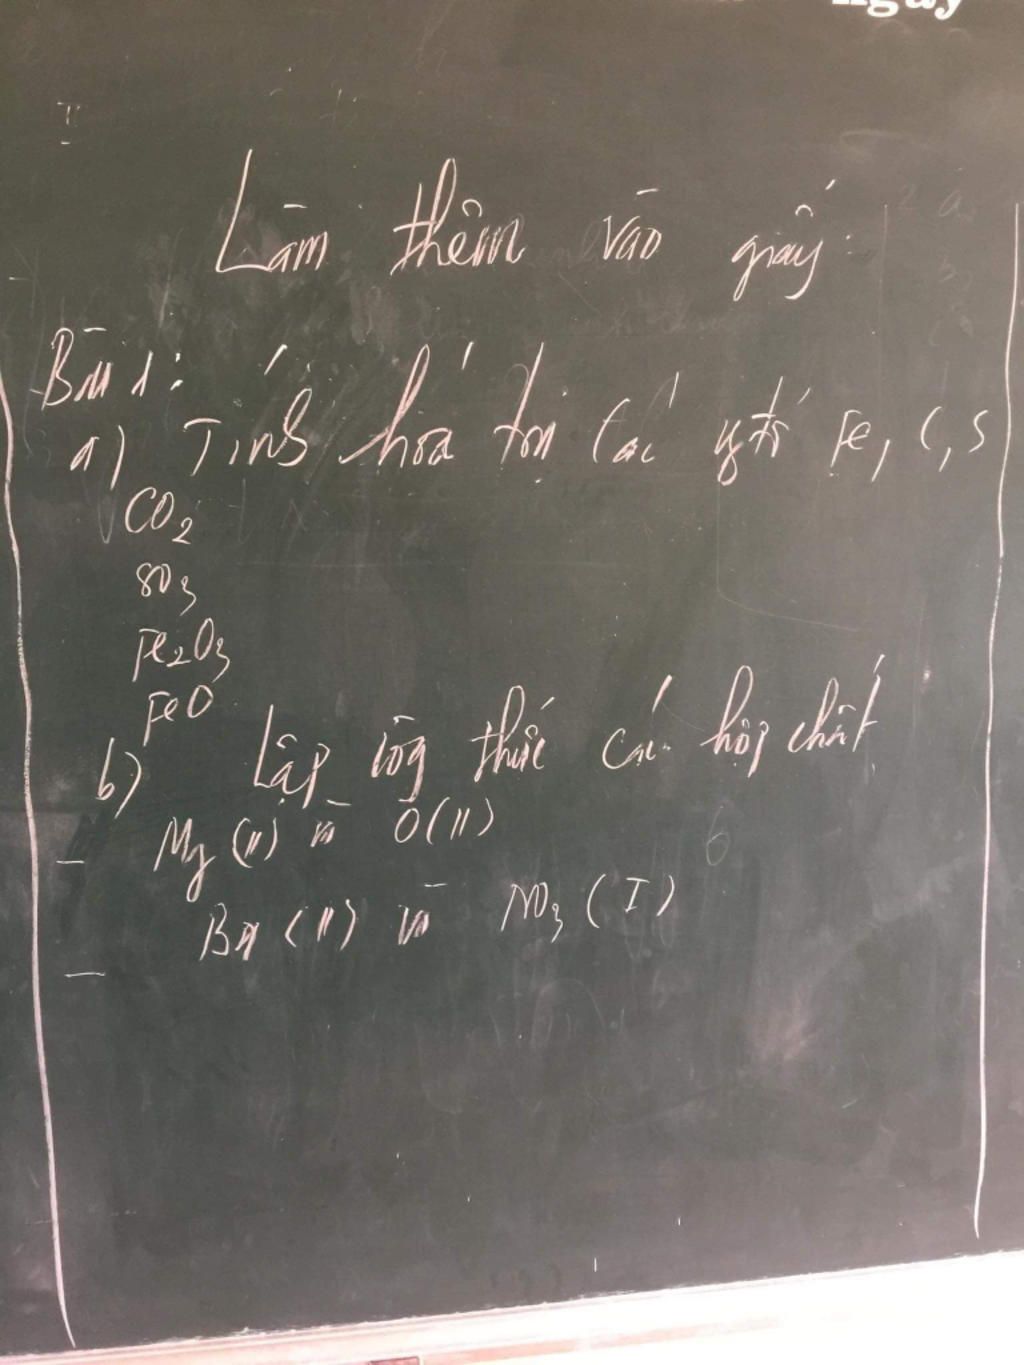 ngày
Làm thêm vào giấy
Bài 1:
a) Tính hóa trị các ntố Fe, C, S
CO2
SO3
Fe2O3
FeO
b) Lập côg thức các hợp chất
- Mg (II) và O (II)
- Ba (II) và NO3 (I)